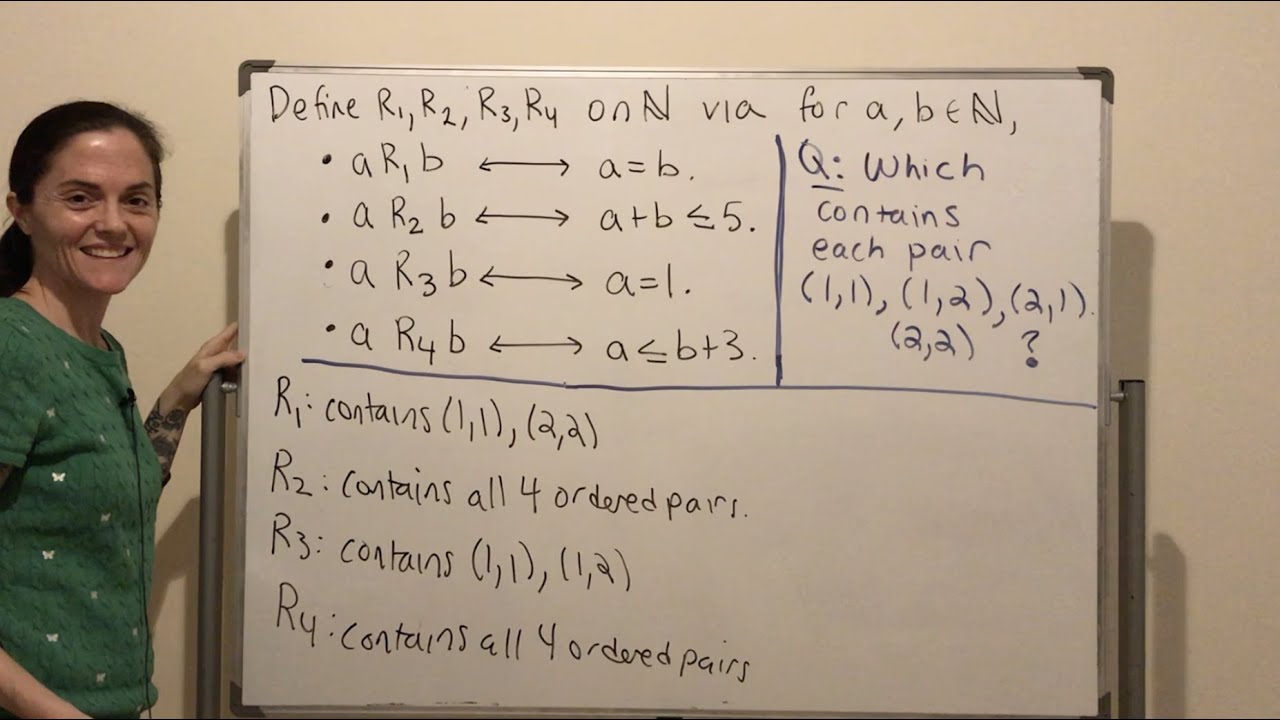 Define R₁, R₂, R₃, R₄ on ℕ via for a, b ∈ ℕ,
• a R₁ b ⟷ a = b.
• a R₂ b ⟷ a + b ≤ 5.
• a R₃ b ⟷ a = 1.
• a R₄ b ⟷ a ≤ b + 3.
Q: Which
contains
each pair
(1,1), (1,2), (2,1).
(2,2) ?
R₁: contains (1,1), (2,2)
R₂: contains all 4 ordered pairs.
R₃: contains (1,1), (1,2)
R₄: contains all 4 ordered pairs